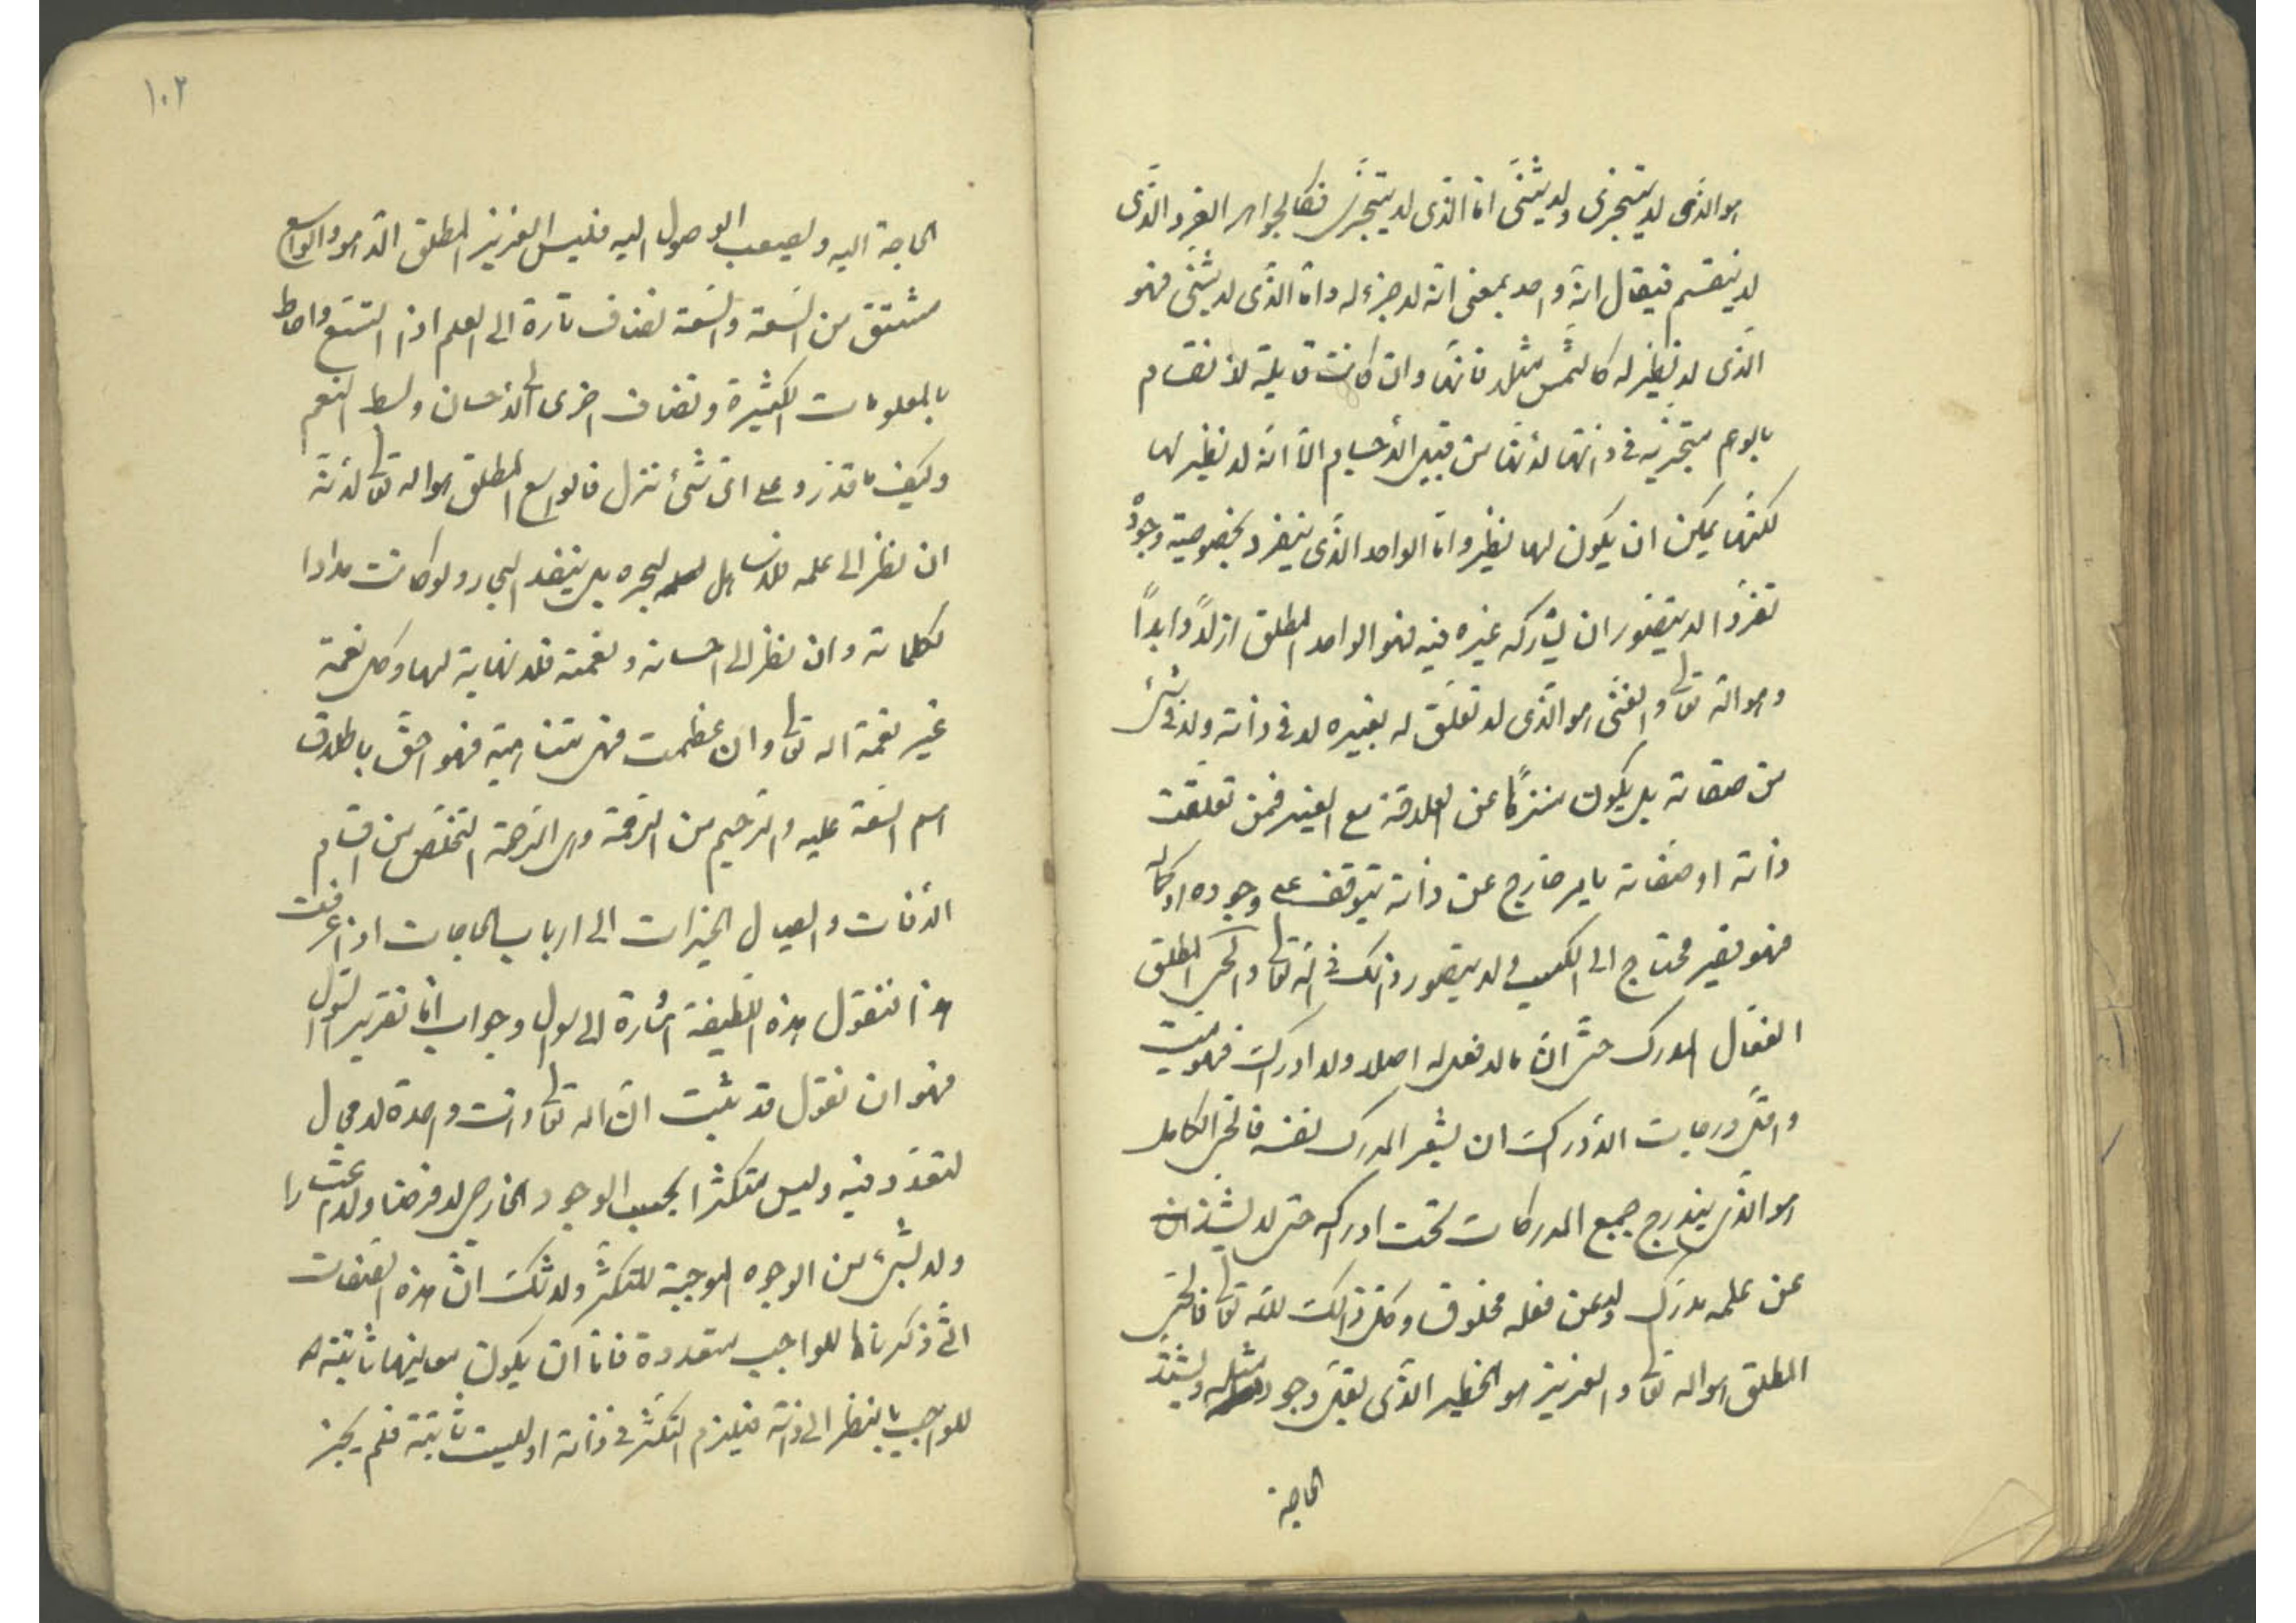 هو الذى لا يتجزى ولا يثنى اما الذى لا يتجزى فكالجواهر الفرد الذى
لا ينقسم فيقال انه واحد بمعنى انه لا جزء له واما الذى لا يثنى فهو
الذى لا نظير له كالشمس مثلا فانها وان كانت قابلة لانقسام
بالوهم متجزية فى ذاتها لانها من قبيل الاجسام الا انه لا نظير لها
لكنها يمكن ان يكون لها نظير واما الواحد الذى ينفرد بخصوصية وجوده
تفردا لا يتصور ان يشاركه غيره فيه فهو الواحد المطلق ازلا وابدا
وهو الله تعالى والغنى هو الذى لا تعلق له بغيره لا فى ذاته ولا فى شئ
من صفاته بل يكون منزها عن العلاقة مع الغير فمن تعلقت
ذاته او صفاته بامر خارج عن ذاته يتوقف على وجوده او كماله
فهو فقير محتاج الى الكسب ولا يتصور ذلك فى الله تعالى والحى المطلق
الفعال المدرك حتى ان ما لا فعل له اصلا ولا ادراك فهو ميت
واقل درجات الادراك ان يشعر المدرك نفسه فالحى الكامل
هو الذى يندرج جميع المدركات تحت ادراكه حتى لا يشذ
عن علمه مدرك ولا عن فعله مخلوق وكل ذلك لله تعالى فالحى
المطلق هو الله تعالى والعزيز هو الخطير الذى يقل وجود مثله ويشتد
الحاجة
١٠٢
الحاجة اليه ويصعب الوصول اليه فليس العزيز المطلق الا هو والواسع
مشتق من السعة والسعة تضاف تارة الى العلم اذا اتسع واحاط
بالمعلومات الكثيرة وتضاف اخرى الى الاحسان وبسط النعم
وكيف ما قدر وعلى اى شئ نزل فالواسع المطلق هو الله تعالى لانه
ان نظر الى علمه فلا ساحل لبحره بل ينفد البحار ولو كانت مدادا
لكلماته وان نظر الى احسانه ونعمته فلا نهاية لها وكل نعمة
غير نعمة الله تعالى وان عظمت فهى متناهية فهو احق باطلاق
اسم السعة عليه والرحيم من الرحمة وهى الرحمة التخلص من اقسام
الآفات وايصال الخيرات الى ارباب الحاجات اذا عرفت
هذا فنقول هذه اللطيفة اشارة الى سوال وجواب اما تقرير السوال
فهو ان نقول قد ثبت ان الله تعالى ذات واحدة لا مجال
لتعدد فيه وليس متكثرا بحسب الوجود الخارجى لا فرضا ولا اعتبارا
ولا بشئ من الوجوه الموجبة للتكثر ولا شك ان هذه الصفات
التى ذكرناها للواجب متعددة فاما ان يكون معانيها ثابتة
للواجب بالنظر الى ذاته فيلزم التكثر فى ذاته او ليست ثابتة فلم يجز